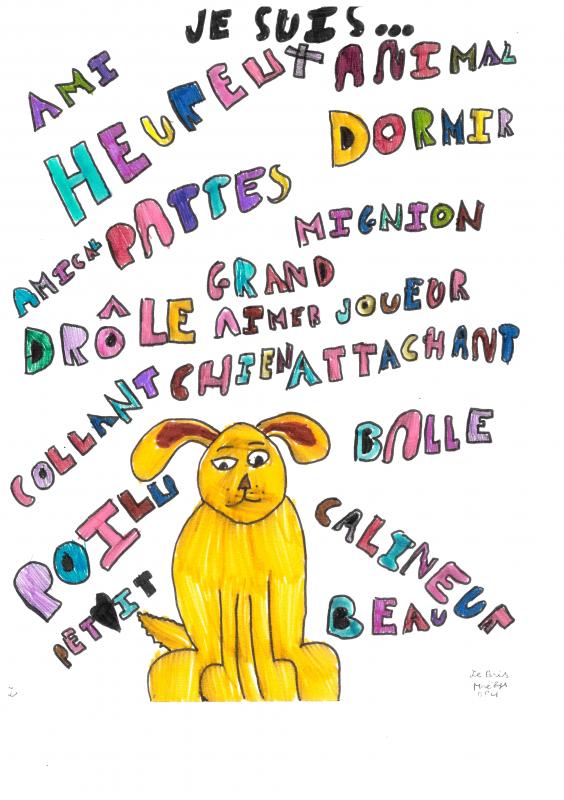 JE SUIS...
AMI
HEUREUX
ANIMAL
DORMIR
PATTES
MIGNION
AMICAL
GRAND
DRÔLE
AIMER
JOUEUR
CHIEN
ATTACHANT
COLLANT
BALLE
POILU
CALINEUR
PETIT
BEAU